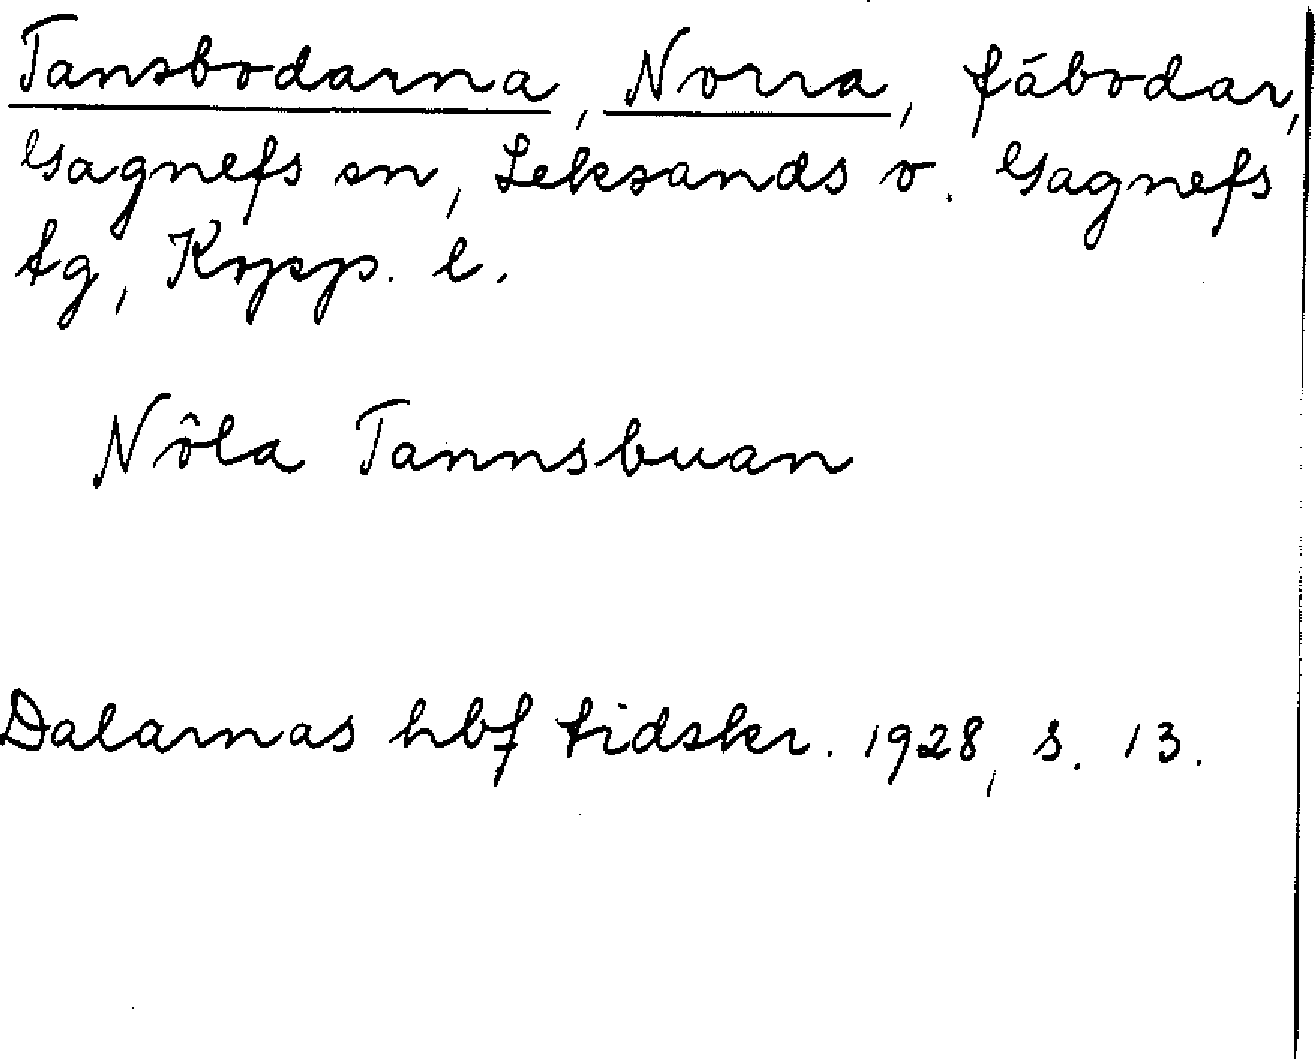 Tansbodarna, Norra, fäbodar,
Gagnefs sn, Leksands o. Gagnefs
tg, Kopp. l.
Nôla Tannsbuan
Dalarnas hbf tidskr. 1928, s. 13.